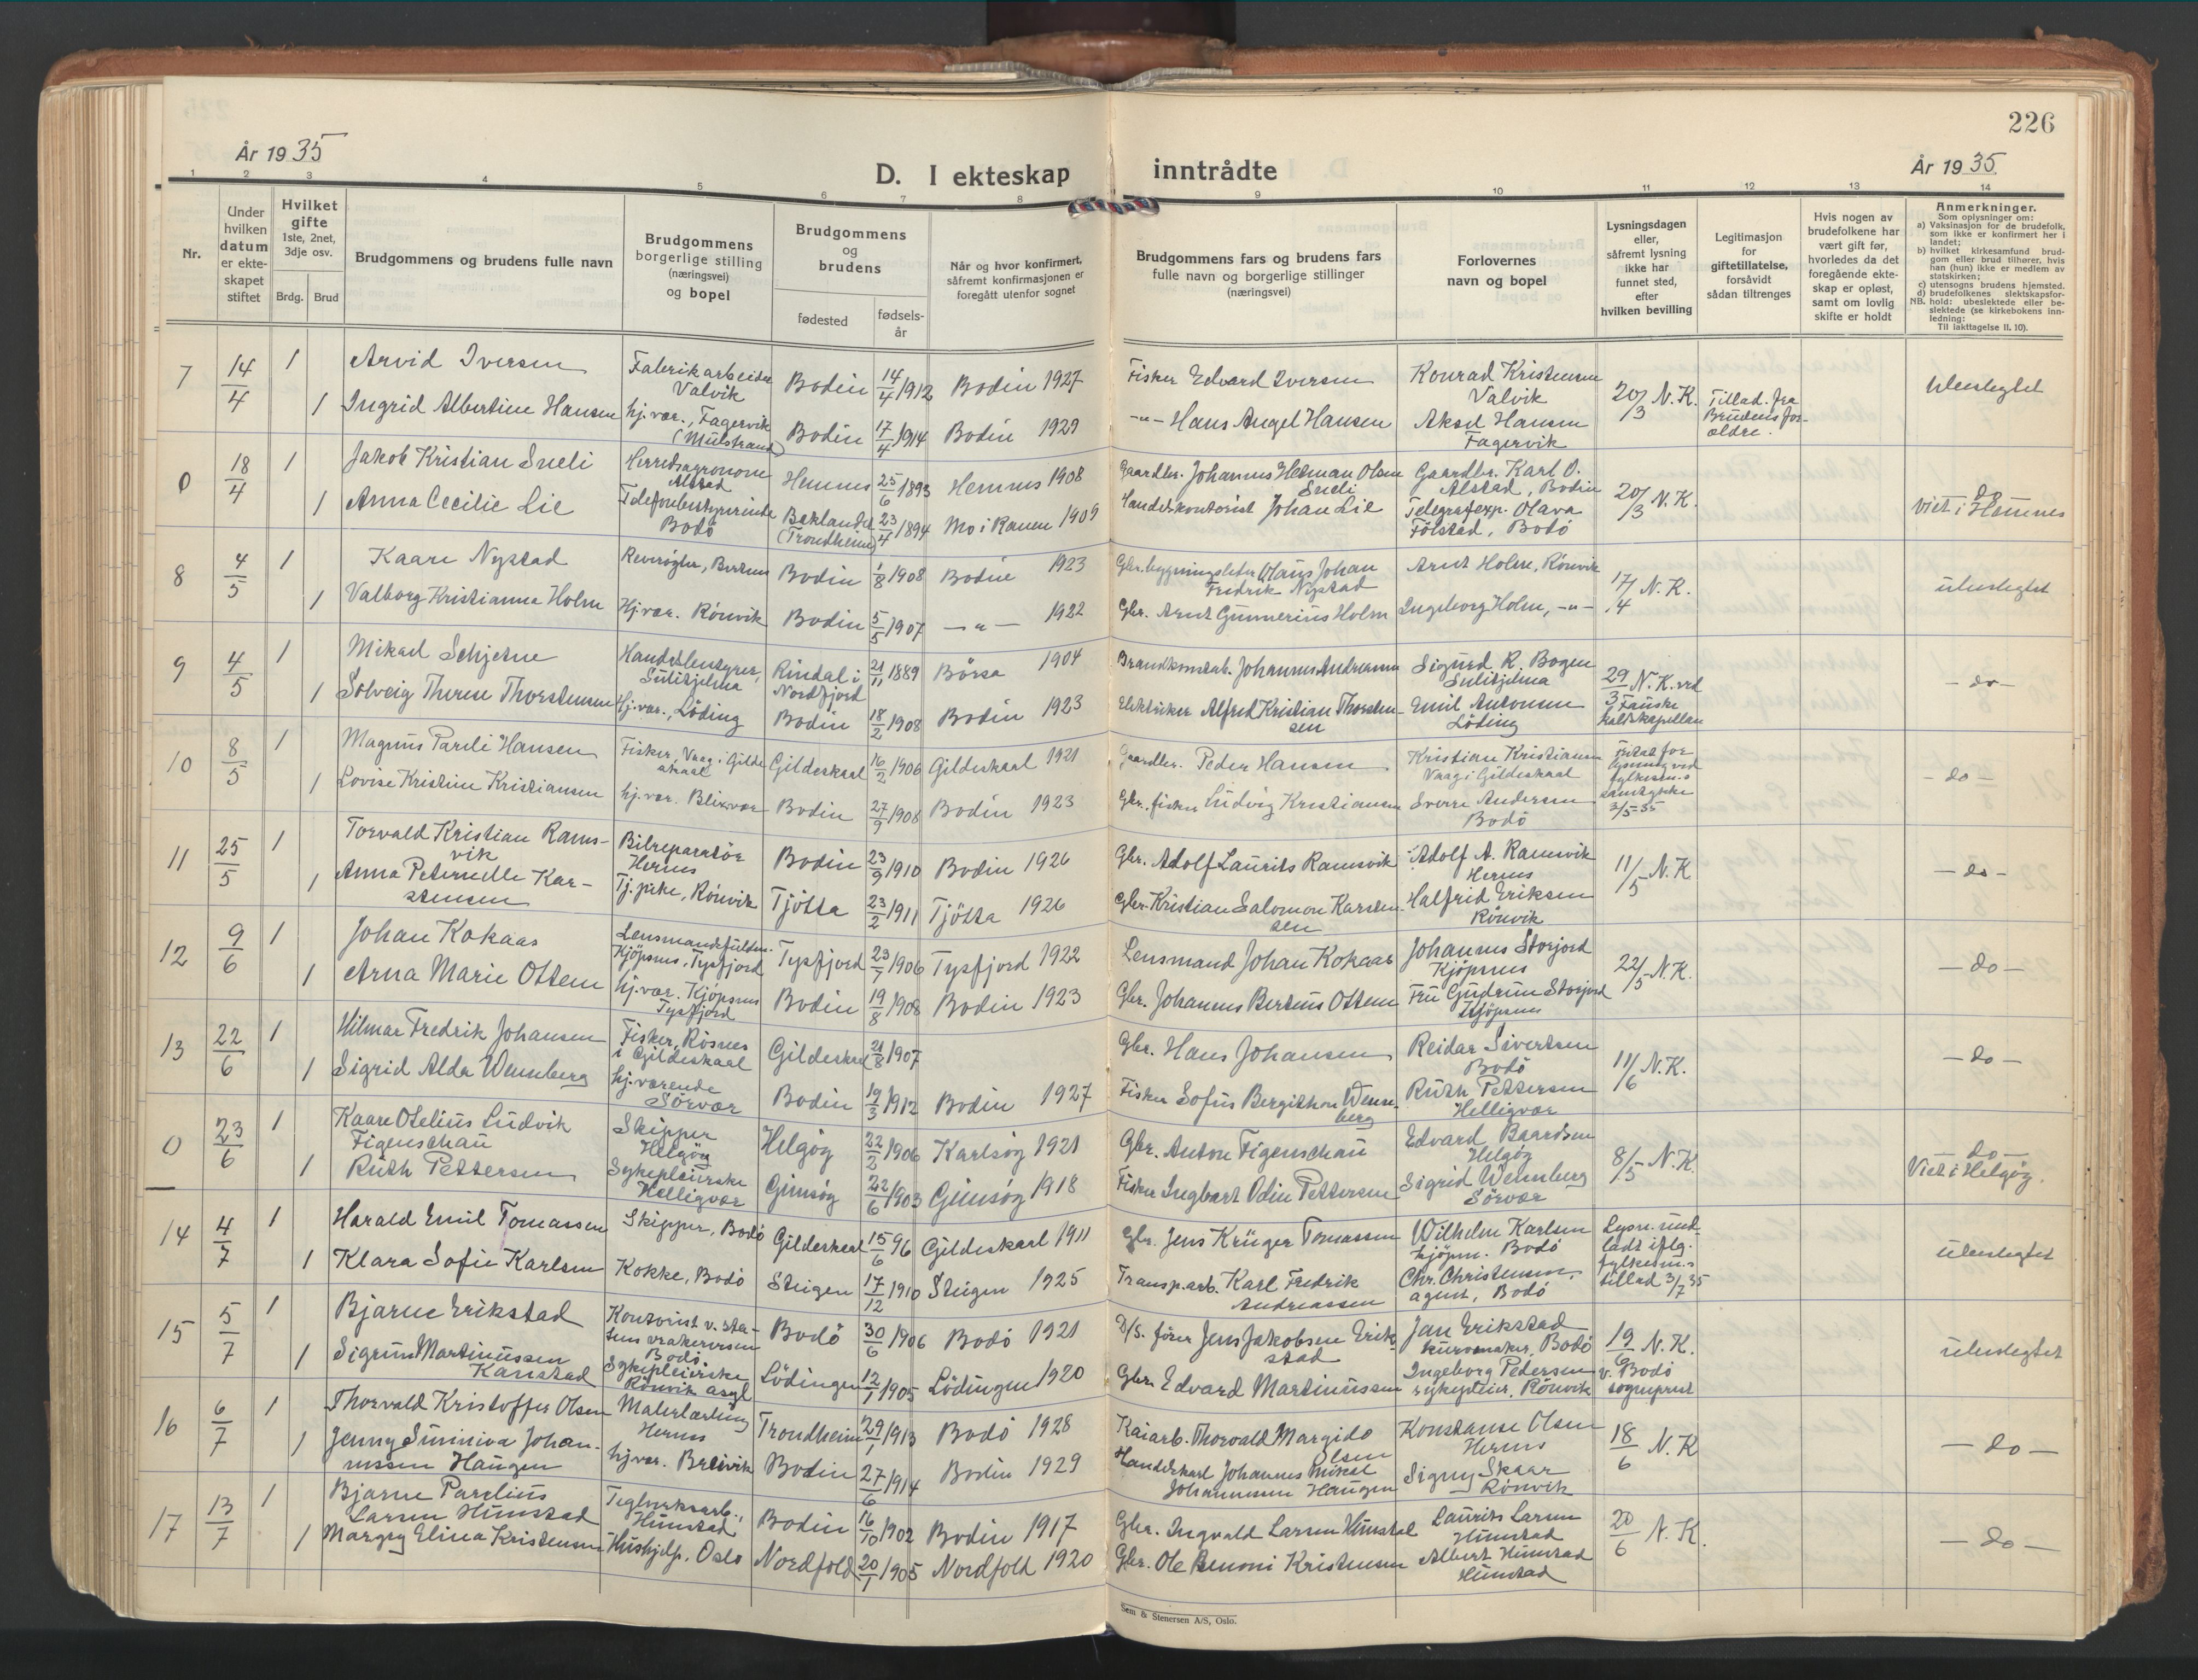 226
År 1935
D. I ekteskap inntrådte
År 1935
1 2 3 4 5 6 7 8 9 10 11 12 13 14
Nr.
Under
hvilken
datum
er ekte-
skapet
stiftet
Hvilket
gifte
1ste, 2net,
3dje osv.
Brdg. Brud
Brudgommens og brudens fulle navn
Brudgommens
borgerlige stilling
(næringsvei)
og bopel
Brudgommens
og
brudens
fødested
fødsels-
år
Når og hvor konfirmert,
såfremt konfirmasjonen er
foregått utenfor sognet
Brudgommens fars og brudens fars
fulle navn og borgerlige stillinger
(næringsvei)
Forlovernes
navn og bopel
Lysningsdagen
eller,
såfremt lysning
ikke har
funnet sted,
efter
hvilken bevilling
Legitimasjon
for
giftetillatelse,
forsåvidt
sådan tiltrenges
Hvis nogen av
brudefolkene har
vært gift før,
hvorledes da det
foregående ekte-
skap er opløst,
samt om lovlig
skifte er holdt
Anmerkninger.
Som oplysninger om:
a) Vaksinasjon for de brudefolk,
som ikke er konfirmert her i
landet;
b) hvilket kirkesamfund brud-
gom eller brud tilhører, hvis
han (hun) ikke er medlem av
statskirken;
c) utensogns brudens hjemsted.
d) brudefolkenes slektskapsfor-
NB. hold: ubeslektede eller be-
slektede (se kirkebokens inn-
ledning:
Til iakttagelse II. 10).
7 14/4 1 Arvid Iversen Fabrikarbeider Valvik Bodin 14/4 1912 Bodin 1927 Fisker Edvard Iversen Konrad Kristensen Valvik 20/3 N.K. Tillad. fra Brudens for-ældre. Ubeslegtet
1 Ingrid Albertine Hansen hj.vær., Fagervik (Mulstrand) Bodin 17/4 1914 Bodin 1929 -"- Hans Angel Hansen Aksel Hansen Fagervik
0 18/4 1 Jakob Kristian Sneli Herredsagronom Alstad Hemnes 25/6 1893 Hemnes 1908 Gaardbr. Johannes Herman Olsen Sneli Gaardbr. Karl O. Alstad, Bodin 20/3 N.K. do Viet i Hemnes
1 Anna Cecilie Lie Telefonbestyrerinde Bodø Baklandet (Trondheim) 23/4 1894 Mo i Ranen 1909 Handelskontorist Johan Lie Telegrafexp. Olava Fölstad, Bodö
8 4/5 1 Kaare Nystad Revrøgter, Bodin 1/8 1908 Bodin 1923 Gbr. Olaus Johan Fredrik Nystad Arnt Holm, Rønvik 17/4 N.K. ubeslegtet
1 Valborg Kristianna Holm Hj.vær. Rønvik Bodin 5/5 1907 -"- 1922 Gbr. Arnt Gunnerius Holm Ingeborg Holm, -"-
9 4/5 1 Mikael Schjetne Handelsbestyrer, Sulitjelma Rindal i Nordfjord 21/11 1889 Børsa 1904 Brandkonstab. Johannes Andreassen Sigurd R. Bogen Sulitjelma 29/3 N.K. ved Fauske kaldskapellan - do -
1 Solveig Therese Thorstensen Hj.vær., Löding Bodin 18/2 1908 Bodin 1923 Elektriker Alfred Kristian Thorstensen Emil Antonsen Löding
10 8/5 1 Magnus Pareli Hansen Fisker, Vaag i Gildeskaal Gildeskaal 16/2 1906 Gildeskaal 1921 Gaardbr. Peder Hansen Kristian Kristiansen Vaag i Gildeskaal Fritat for lysning ved fylkesm.s samtykke 3/5-35 - do -
1 Lovise Kristine Kristiansen hj.vær. Blixvær Bodin 27/9 1908 Bodin 1923 Gbr. fisker Ludvig Kristiansen Sverre Andersen Bodö
11 25/5 1 Torvald Kristian Ramsvik Bilreparatør Hernes Bodin 23/9 1910 Bodin 1926 Gbr. Adolf Laurits Ramsvik Adolf A. Ramsvik Hernes 11/5 N.K. - do -
1 Anna Peternelle Karstensen Tj.pike, Rønvik Tjötta 23/2 1911 Tjötta 1926 Gbr. Kristian Salomon Karstensen Halfrid Eriksen Rønvik
12 9/6 1 Johan Kokaas Lensmandsfuldm. Kjöpsnes, Tysfjord Tysfjord 23/7 1906 Tysfjord 1922 Lensmand Johan Kokaas Johannes Storjord Kjöpsnes 22/5 N.K. - do -
1 Arna Marie Ottem hj.vær. Kjöpsnes Tysfjord Bodin 19/8 1908 Bodin 1923 Gbr. Johannes Berteus Ottem Fru Gudrun Storjord Kjöpsnes
13 22/6 1 Hilmar Fredrik Johansen Fisker, Røsnes i Gildeskaal Gildeskaal 21/8 1907 Gbr. Hans Johansen Reidar Sivertsen Bodö 11/6 N.K. - do -
1 Sigrid Alda Wennberg hj.værende Sörvær Bodin 19/3 1912 Bodin 1927 Fisker Sofus Bergithon Wennberg Ruth Pettersen Helligvær
0 23/6 1 Kaare Otelius Ludvik Figenschau Skipper Helgöy Helgöy 22/2 1906 Karlsøy 1921 Gbr. Anton Figenschau Edvard Baardsen Helgöy 8/5 N.K. do Viet i Helgöy.
1 Ruth Pettersen Sykepleierske Helligvær Gimsøy 22/6 1903 Gimsøy 1918 Fisker Ingbart Odin Pettersen Sigrid Wennberg Sörvær
14 4/7 1 Harald Emil Tomassen Skipper, Bodö Gildeskaal 15/6 96 Gildeskaal 1911 Gbr. Jens Krüger Tomassen Wilhelm Karlsen kjöpm. Bodö Lysn. undladt iflg. fylkesm.s tillad 3/7 35 ubeslegtet
1 Klara Sofie Karlsen Kokke, Bodö Steigen 17/12 1910 Steigen 1925 Transp.arb. Karl Fredrik Andreassen Chr. Christensen, agent, Bodö
15 5/7 1 Bjarne Erikstad Kontorist v. statens vrakervesen Bodö Bodö 30/6 1906 Bodö 1921 D/S. förer Jens Jakobsen Erikstad Jan Erikstad Bodö 19/6 N.K. v. Bodö sogneprest ubeslegtet
1 Sigrun Martinussen Kanstad Sykepleierske Rönvik asyl Lödingen 12/7 1905 Lödingen 1920 Gbr. Edvard Martinussen Ingeborg Pedersen sykepleier, Rönvik
16 6/7 1 Thorvald Kristoffer Olsen Malerlærling Hernes Trondheim 29/1 1913 Bodö 1928 Kaiarb. Thorvald Margido Olsen Konstanse Olsen Hernes 18/6 N.K. - do -
1 Jenny Sunniva Johannessen Haugen hj.vær. Breivik Bodin 27/6 1914 Bodin 1929 Handelskarl Johannes Mikal Johannessen Haugen Signy Skaar Rönvik
17 13/7 1 Bjarne Parelius Larsen Hunstad Teglverksarb., Hunstad Bodin 16/10 1902 Bodin 1917 Gbr. Ingvald Larsen Hunstad Laurits Larsen Hunstad 20/6 N.K. - do -
1 Margry Elina Kristensen Hushjelp, Oslo Nordfold 20/1 1905 Nordfold 1920 Gbr. Ole Benoni Kristensen Albert Hunstad Hunstad
Sem & Stenersen A/S, Oslo.